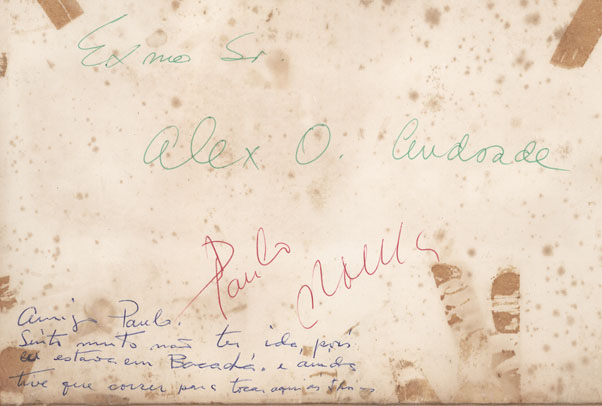 Exmo Sr.
Alex O. Andrade
Paulo
Amigo Paulo.
Sinto muito não ter ido pois
eu estava em Bacaxá. e ainda
tive que correr para tocar aqui as